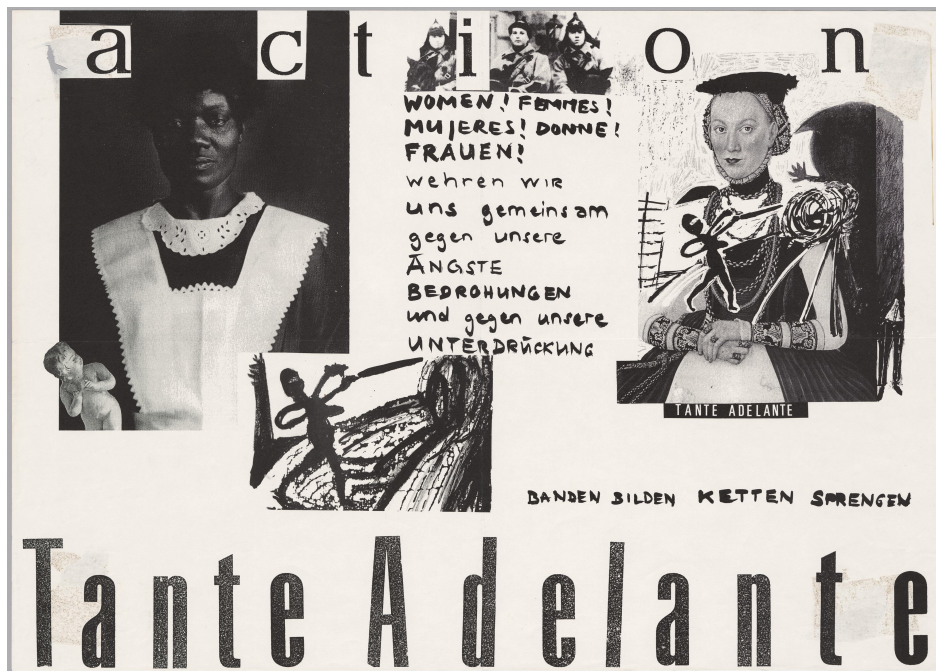 action
WOMEN! FEMMES!
MUJERES! DONNE!
FRAUEN!
wehren WIR
uns gemeinsam
gegen unsere
ÄNGSTE
BEDROHUNGEN
und gegen unsere
UNTERDRÜCKUNG
TANTE ADELANTE
BANDEN BILDEN KETTEN SPRENGEN
Tante Adelante